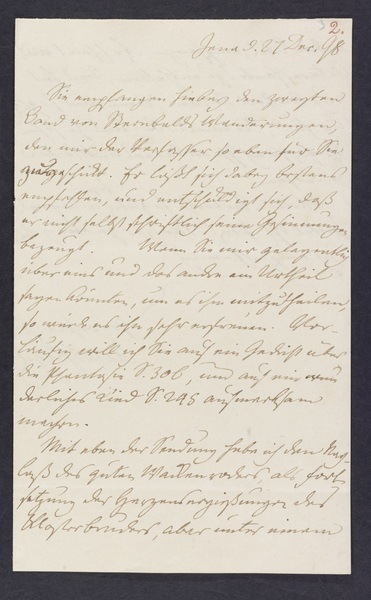 2.
Jena d. 27 Dec. 98
Sie empfangen hiebey den zweyten
Band von Sternbalds Wanderungen,
den mir der Verfasser so eben für Sie
zugeschickt. Er läßt sich dabey bestens
empfehlen, und entschuldigt sich, daß
er nicht selbst schriftlich seine Gesinnungen
bezeugt. Wenn Sie mir gelegentlich
über eins und das andre ein Urtheil
sagen könnten, um es ihm mitzutheilen,
so würde es ihn sehr erfreuen. Vor-
läufig will ich Sie auf ein Gedicht über
die Phantasie S. 306, und auf ein wun
derliches Lied S. 248 aufmerksam
machen.
Mit eben der Sendung habe ich den Nach-
laß des guten Wackenroders, als Fort
setzung der Herzensergießungen des
Klosterbruders, aber unter einem